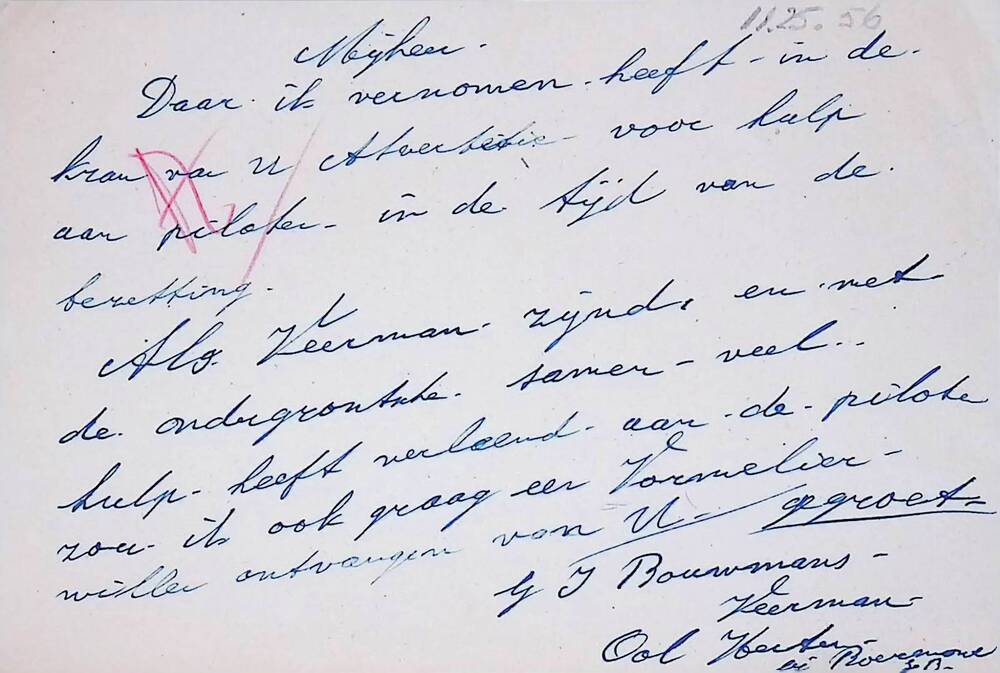 11.25.56
Mijheer.
Daar. ik vernomen. heeft - in de.
kran van U Atvertetie - voor hulp
aan piloten - in de tijd van de.
bezetting.
Als. Veerman. zijnde en met
de. ondergrontsche. samen - veel..
hulp - heeft verleend. aan - de - pilote
zou - ik ook graag een Vormelier -
willen ontvangen van U - ggroet -
J Bouwmans -
Veerman -
Ool Herten -
bij Roermond